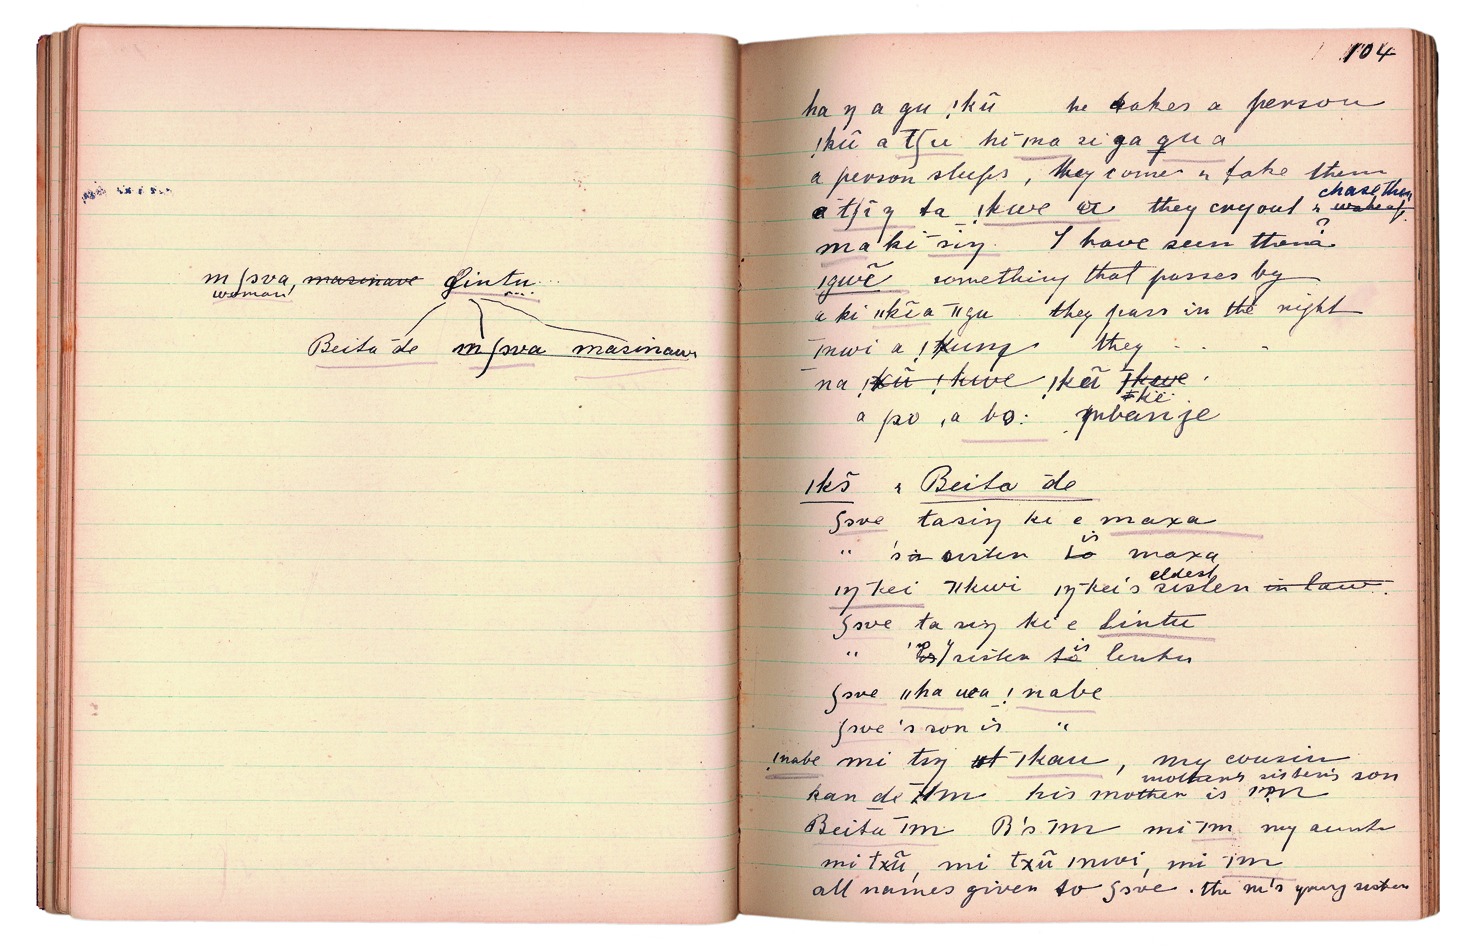 mʃsva, masinave ʃintu
woman
Beita de mʃsva masinau
104
ha ŋ a gu !kū he takes a person
!kū a tʃu hi ma si ga qu a
a person sleeps, they come & take them
chase them
a tʃi ŋ ta !kwe a they cry out & wake up
?
ma ki siŋ I have seen them
ıgwē something that passes by
a ki ǁkĩa ǁgu they pass in the night
inwi a !kung they
na !kū !kwe !kū ʇkwe
ǂkē
a po, a bo: mbanje
ıkō & Beita de
ʃsve tasiŋ ki e maxa
" 's sisten is to maxa
eldest
iŋ kei ǁkwi iŋkei's sister in law
ʃsve ta siŋ ki e lintu
" 's sister is to lintu
ʃsve ǁha wa !nabe
ʃsve's son is "
!nabe mi tiŋ ıkau, my cousin
mother's sister's son
kan de ım his mother is
Beita ım B's ım mi ım my aunt
mi txū, mi txū inwi, mi ım
all names given to ʃsve. the m's young sister